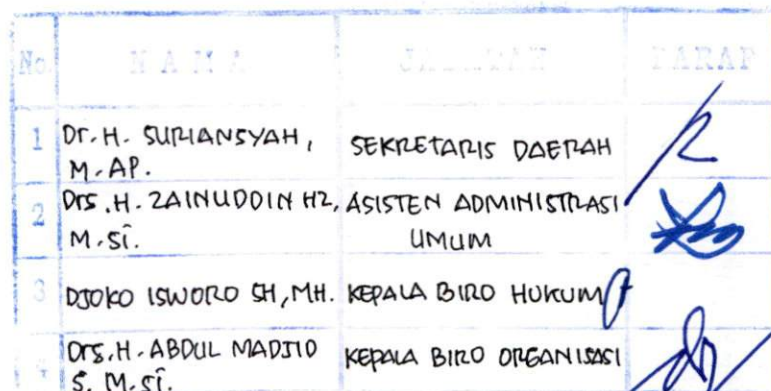 No. NAMA JABATAN PARAF
1 Dr. H. SURIANSYAH, SEKRETARIS DAERAH
M.AP.
2 Drs. H. ZAINUDDIN HZ, ASISTEN ADMINISTRASI
M.Si. UMUM
3 DJOKO ISWORO SH, MH. KEPALA BIRO HUKUM
4 Drs. H. ABDUL MADJID KEPALA BIRO ORGANISASI
S. M.Si.